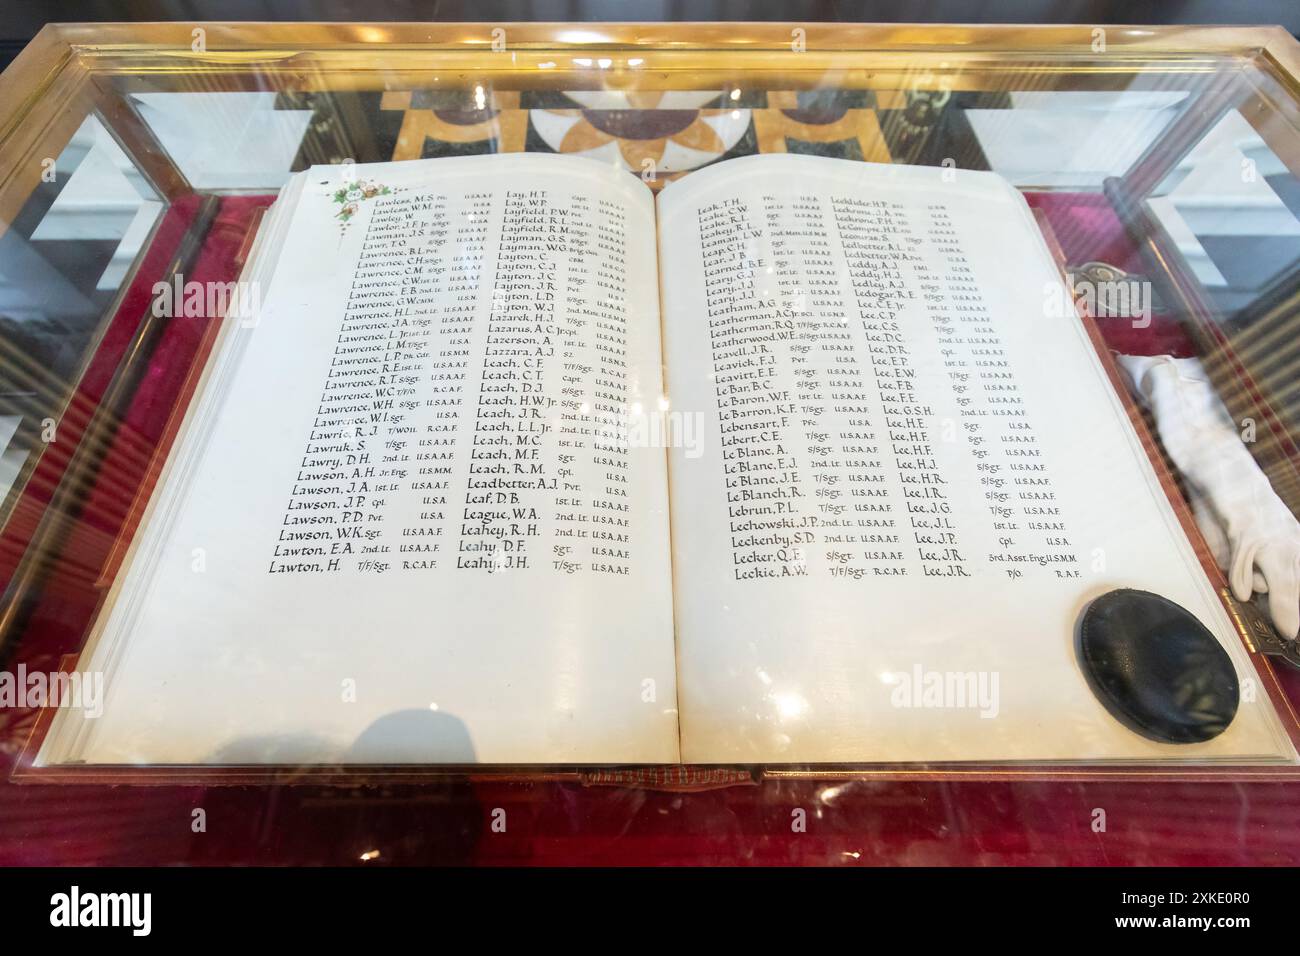 Lawless, M.S. Pfc. U.S.A.A.F.
Lawless, W.M. Pfc. U.S.A.
Lawley, W. Sgt. U.S.A.A.F.
Lawlor, J.F. Jr. S/Sgt. U.S.A.
Lawman, J.S. U.S.A.A.F.
Lawr, T.O. S/Sgt. U.S.A.A.F.
Lawrence, B.L. Pvt. U.S.A.
Lawrence, C.H. S/Sgt. U.S.A.A.F.
Lawrence, C.M. S/Sgt. U.S.A.A.F.
Lawrence, C.W. 1st. Lt. U.S.A.A.F.
Lawrence, E.B. 2nd. Lt. U.S.A.A.F.
Lawrence, G.W. CMM. U.S.N.
Lawrence, H.L. 2nd. Lt. U.S.A.A.F.
Lawrence, J.A. T/Sgt. U.S.A.A.F.
Lawrence, L. Jr. 1st. Lt. U.S.A.A.F.
Lawrence, L.M. T/Sgt. U.S.A.
Lawrence, L.P. Dk. Cdr. U.S.M.M.
Lawrence, R.E. 1st. Lt. U.S.A.A.F.
Lawrence, R.T. S/Sgt. U.S.A.A.F.
Lawrence, W.C. T/F/O R.C.A.F.
Lawrence, W.H. S/Sgt. U.S.A.A.F.
Lawrence, W.I. Sgt. U.S.A.
Lawrie, R. J. T/WO11. R.C.A.F.
Lawruk, S. T/Sgt. U.S.A.A.F.
Lawry, D.H. 2nd. Lt. U.S.A.A.F.
Lawson, A.H. Jr. Eng. U.S.M.M.
Lawson, J.A. 1st. Lt. U.S.A.A.F.
Lawson, J.P. Cpl. U.S.A.
Lawson, P.D. Pvt. U.S.A.
Lawson, W.K. Sgt. U.S.A.A.F.
Lawton, E.A. 2nd. Lt. U.S.A.A.F.
Lawton, H. T/F/Sgt. R.C.A.F.
Lay, H.T. Capt. U.S.A.A.F.
Lay, W.P. 1st. Lt. U.S.A.A.F.
Layfield, P.W. Pvt.
Layfield, R.L. 2nd. Lt.
Layfield, R.M. S/Sgt. U.S.A.A.F.
Layman, G.S. S/Sgt. U.S.A.A.F.
Layman, W.G. Brig. Gen. U.S.A.
Layton, C. CBM. U.S.C.G.
Layton, C.J. 1st. Lt. U.S.A.A.F.
Layton, J.C. S/Sgt. U.S.A.A.F.
Layton, J.R. Pvt. U.S.A.
Layton, L.D. S/Sgt. U.S.A.A.F.
Layton, W.J. 2nd. Mate. U.S.M.M.
Lazarek, H.J. T/Sgt. U.S.A.A.F.
Lazarus, A.C. Jr. Cpl. U.S.A.
Lazerson, A. 1st. Lt. U.S.A.A.F.
Lazzara, A.J. S2. U.S.N.R.
Leach, C. F. T/F/Sgt. R.C.A.F.
Leach, C. T. Capt. U.S.A.A.F.
Leach, D. J. S/Sgt. U.S.A.A.F.
Leach, H.W. Jr. S/Sgt. U.S.A.A.F.
Leach, J. R. 2nd. Lt. U.S.A.A.F.
Leach, L.L. Jr. 2nd. Lt. U.S.A.A.F.
Leach, M.C. 1st. Lt. U.S.A.A.F.
Leach, M.F. Sgt. U.S.A.A.F.
Leach, R.M. Cpl. U.S.A.
Leadbetter, A.J. Pvt. U.S.A.
Leaf, D. B. 1st. Lt. U.S.A.A.F.
League, W.A. 2nd. Lt. U.S.A.A.F.
Leahey, R. H. 2nd. Lt. U.S.A.A.F.
Leahy, D. F. Sgt. U.S.A.A.F.
Leahy, J. H. T/Sgt. U.S.A.A.F.
Leak, T.H. Pfc. U.S.A.
Leake, C.W. 1st. Lt. U.S.A.A.F.
Leake, R.L. Sgt. U.S.A.A.F.
Leakey, R.L. Pfc. U.S.A.
Leaman, L.W. 2nd. Mate. U.S.M.M.
Leap, C.H. Sgt. U.S.A.
Lear, J. B 1st. Lt. U.S.A.A.F.
Learned, B.E. Sgt. U.S.A.A.F.
Leary, G.J. 1st. Lt. U.S.A.A.F.
Leary, J.J. 1st. Lt. U.S.A.A.F.
Leary, J.J. 2nd. Lt. U.S.A.A.F.
Leatham, A.G. S/Sgt. U.S.A.A.F.
Leatherman, A.C. Jr. SC1. U.S.N.
Leatherman, R.Q. T/F/Sgt. R.C.A.F.
Leatherwood, W.E. S/Sgt. U.S.A.A.F.
Leavell, J.R. S/Sgt. U.S.A.A.F.
Leavick, F.J. Pvt. U.S.A.
Leavitt, E.E. S/Sgt. U.S.A.A.F.
Le Bar, B.C. S/Sgt. U.S.A.A.F.
Le Baron, W.F. 1st. Lt. U.S.A.A.F.
Le Barron, K.F. T/Sgt. U.S.A.A.F.
Lebensart, F. Pfc. U.S.A.
Lebert, C.E. T/Sgt. U.S.A.A.F.
Le Blanc, A. S/Sgt. U.S.A.A.F.
Le Blanc, E.J. 2nd. Lt. U.S.A.A.F.
Le Blanc, J. E. T/Sgt. U.S.A.A.F.
Le Blanch, R. S/Sgt. U.S.A.A.F.
Lebrun, P. L. T/Sgt. U.S.A.A.F.
Lechowski, J.P. 2nd. Lt. U.S.A.A.F.
Leckenby, S.D. 2nd. Lt. U.S.A.A.F.
Lecker, Q. E. S/Sgt. U.S.A.A.F.
Leckie, A. W. T/F/Sgt. R.C.A.F.
Lecklider, H.P. SC1. U.S.N.
Leckrone, J.A. Pvt. U.S.A.
Leckrone, P.H. R.A.F.
Le Compte, H.E. U.S.N.
Lecouras, S. T/Sgt. U.S.A.A.F.
Ledbetter, A.L. U.S.N.
Ledbetter, W.A. Pvt. U.S.A.
Leddy, A.J. EM1. U.S.N.
Leddy, H.J. 2nd. Lt. U.S.A.A.F.
Ledley, A.J. S/Sgt. U.S.A.A.F.
Ledogar, R. E. S/Sgt. U.S.A.A.F.
Lee, C.E. Jr. 1st. Lt. U.S.A.A.F.
Lee, C.P. T/Sgt. U.S.A.A.F.
Lee, C.S. T/Sgt. U.S.A.
Lee, D.C. 2nd. Lt. U.S.A.A.F.
Lee, D.R. Cpl. U.S.A.
Lee, E.P. 1st. Lt. U.S.A.A.F.
Lee, E.W. T/Sgt. U.S.A.
Lee, F.B. Sgt. U.S.A.A.F.
Lee, F.E. S/Sgt. U.S.A.A.F.
Lee, G.S.H. 2nd. Lt. U.S.A.A.F.
Lee, H.E. Sgt. U.S.A.
Lee, H.F. Sgt. U.S.A.A.F.
Lee, H.F. Sgt. U.S.A.A.F.
Lee, H.J. S/Sgt. U.S.A.A.F.
Lee, H.R. S/Sgt. U.S.A.A.F.
Lee, I.R. S/Sgt. U.S.A.A.F.
Lee, J.G. T/Sgt. U.S.A.A.F.
Lee, J.L. 1st. Lt. U.S.A.A.F.
Lee, J.P. Cpl. U.S.A.
Lee, J.R. 3rd. Asst. Eng. U.S.M.M.
Lee, J.R. P/O. R.A.F.
alamy
Image ID: 2XKE0R0
www.alamy.com